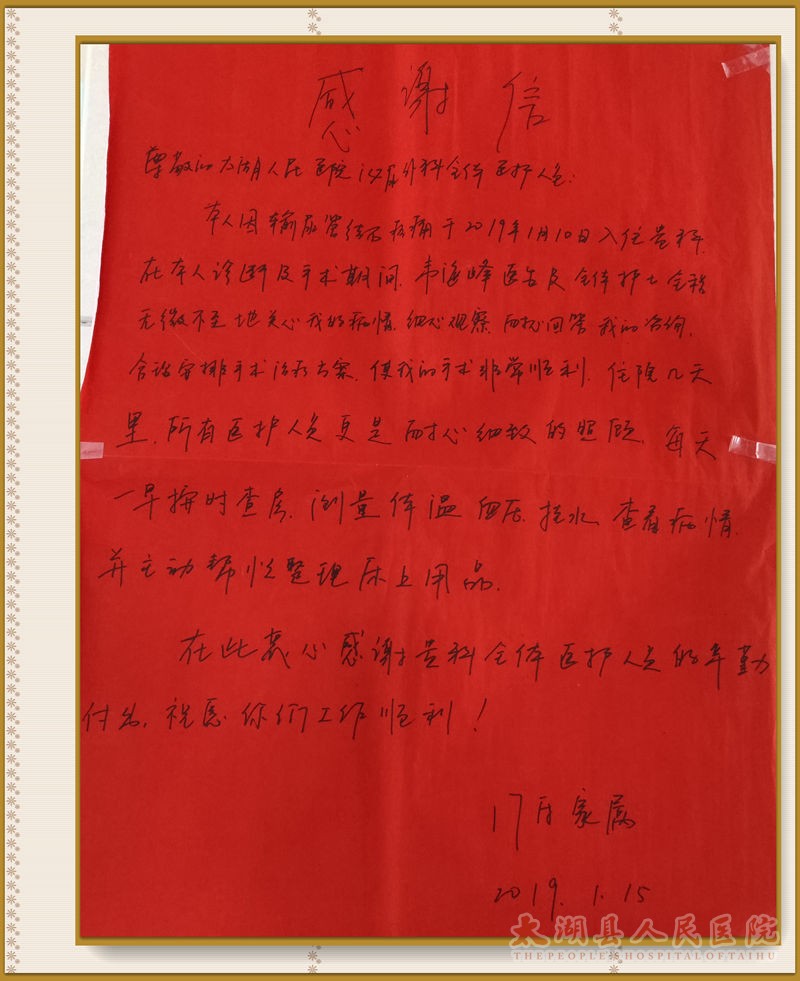 感谢信
尊敬的太湖人民医院泌尿外科全体医护人员:
本人因输尿管结石疼痛于2019年1月10日入住贵科,
在本人诊断及手术期间,韦海峰医生及全体护士全程
无微不至地关心我的病情,细心观察,耐心回答我的咨询,
合理安排手术治疗方案,使我的手术非常顺利,住院几天
里,所有医护人员更是耐心细致的照顾,每天
一早按时查房,测量体温血压,挂水,查看病情,
并主动帮忙整理床上用品。
在此衷心感谢贵科全体医护人员的辛勤
付出,祝愿你们工作顺利!
17床家属
2019.1.15
太湖县人民医院
THE PEOPLE'S HOSPITAL OF TAIHU